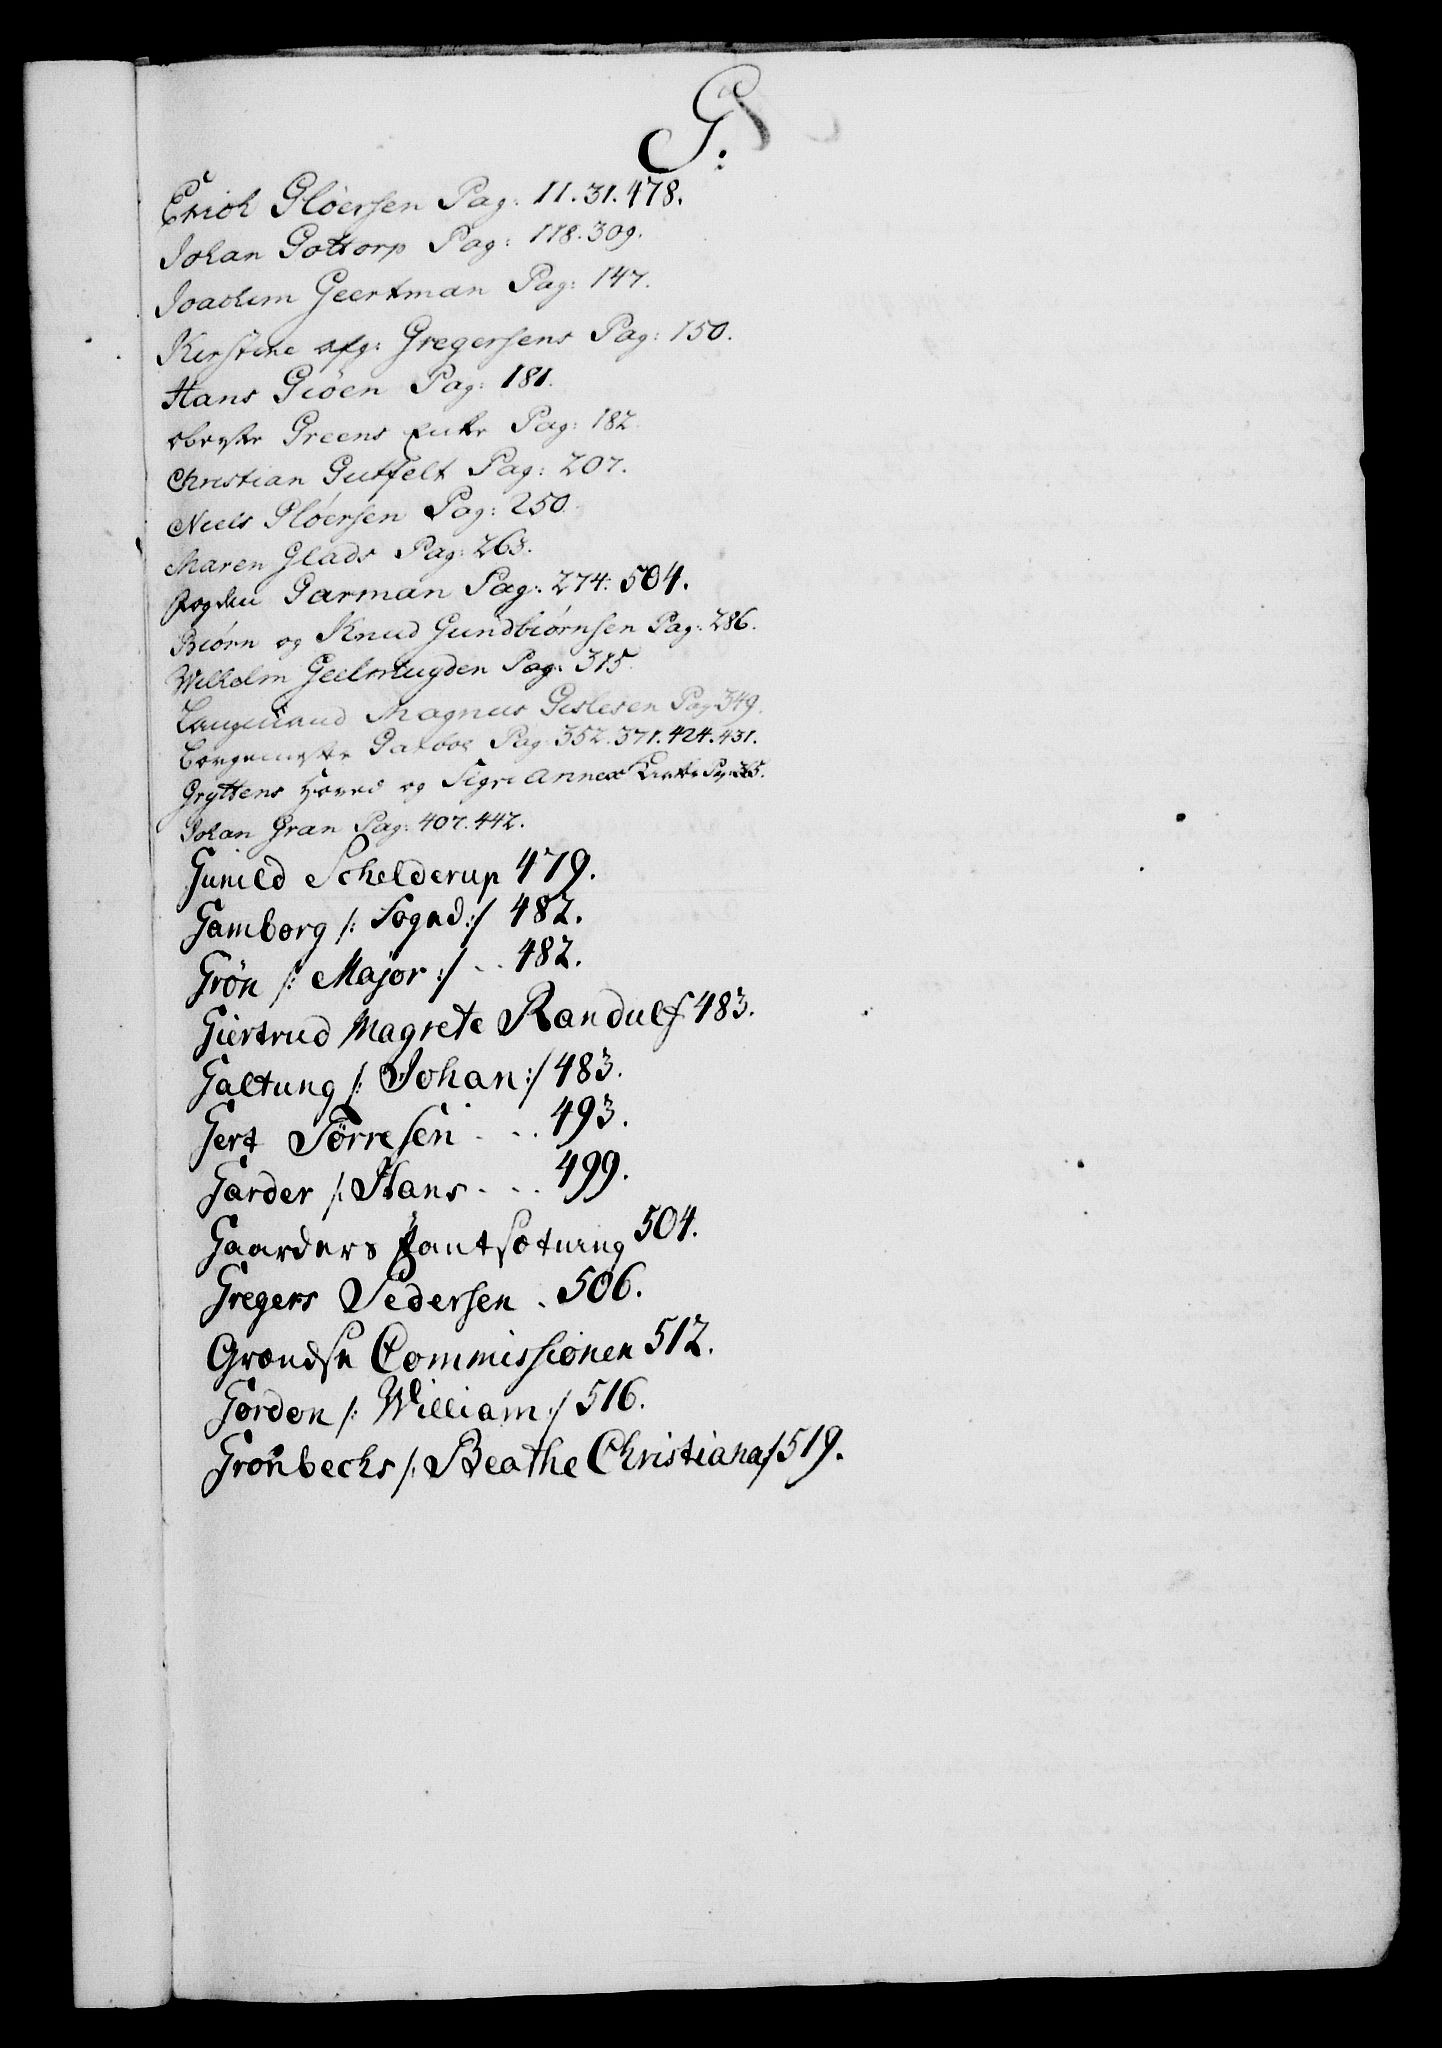 G:
Erich Gløersen Pag: 11. 31. 478.
Johan Gottorp Pag: 118. 309.
Joachim Geertman Pag: 147.
Kirstine afg: Gregersens Pag: 150.
Hans Giöen Pag: 181.
Oberste Greens Enke Pag: 182
Christian Gutfelt Pag: 207.
Niels Gløersen Pag: 250.
Maren Glads Pag: 263.
Fogden Garman Pag: 274. 504.
Biørn og Knud Gundbiørnsen Pag: 286.
Wilhelm Geelmuyden Pag: 315.
Laugmand Magnus Gislesen Pag 349.
Borgemester Garboe Pag: 352. 371. 424. 431.
Gryttens Hoved og Annex Kirke Pag:
Johan Gran Pag: 407. 442.
Gunild Schelderup 479.
Gamborg /: Fogd :/ 482.
Grön /: Major :/ .. 482.
Giertrud Magrete Randulf 483.
Galtung /: Johan :/ 483.
Gert Törresen . . . 493.
Garder /: Hans . . . 499.
Gaarders Pantsætning 504.
Gregers Pedersen . 506.
Grændse Commissionen 512.
Gordon /: William :/ 516.
Grönbechs /: Beathe Christiana :/ 519.